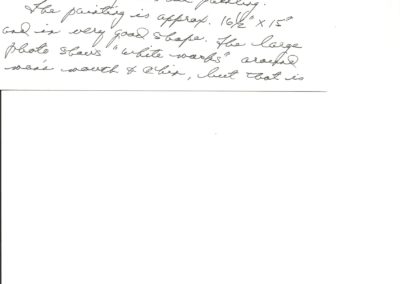 painting.
The painting is approx. 16½" x 15"
and in very good shape. The large
photo shows "white marks" around
man's mouth & chin, but that is